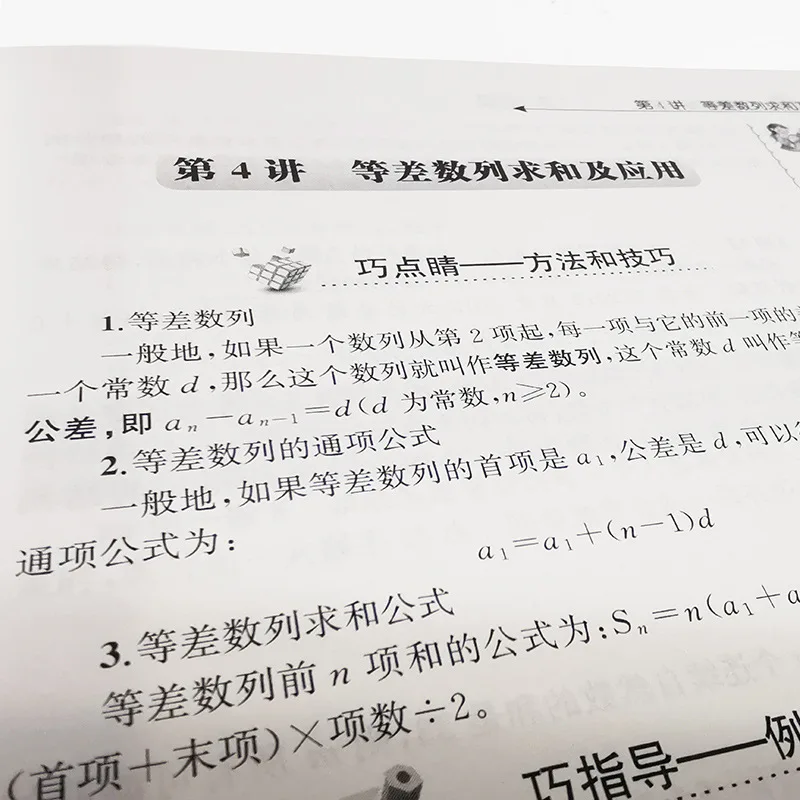 第4讲 等差数列求和
第4讲 等差数列求和及应用
巧点睛——方法和技巧
1.等差数列
一般地,如果一个数列从第2项起,每一项与它的前一项的
一个常数d,那么这个数列就叫作等差数列,这个常数d叫作等
公差,即aₙ-aₙ₋₁=d(d为常数,n≥2)。
2.等差数列的通项公式
一般地,如果等差数列的首项是a₁,公差是d,可以
通项公式为:
a₁=a₁+(n-1)d
3.等差数列求和公式
等差数列前n项和的公式为:Sₙ=n(a₁+a
(首项+末项)×项数÷2。
巧指导——例